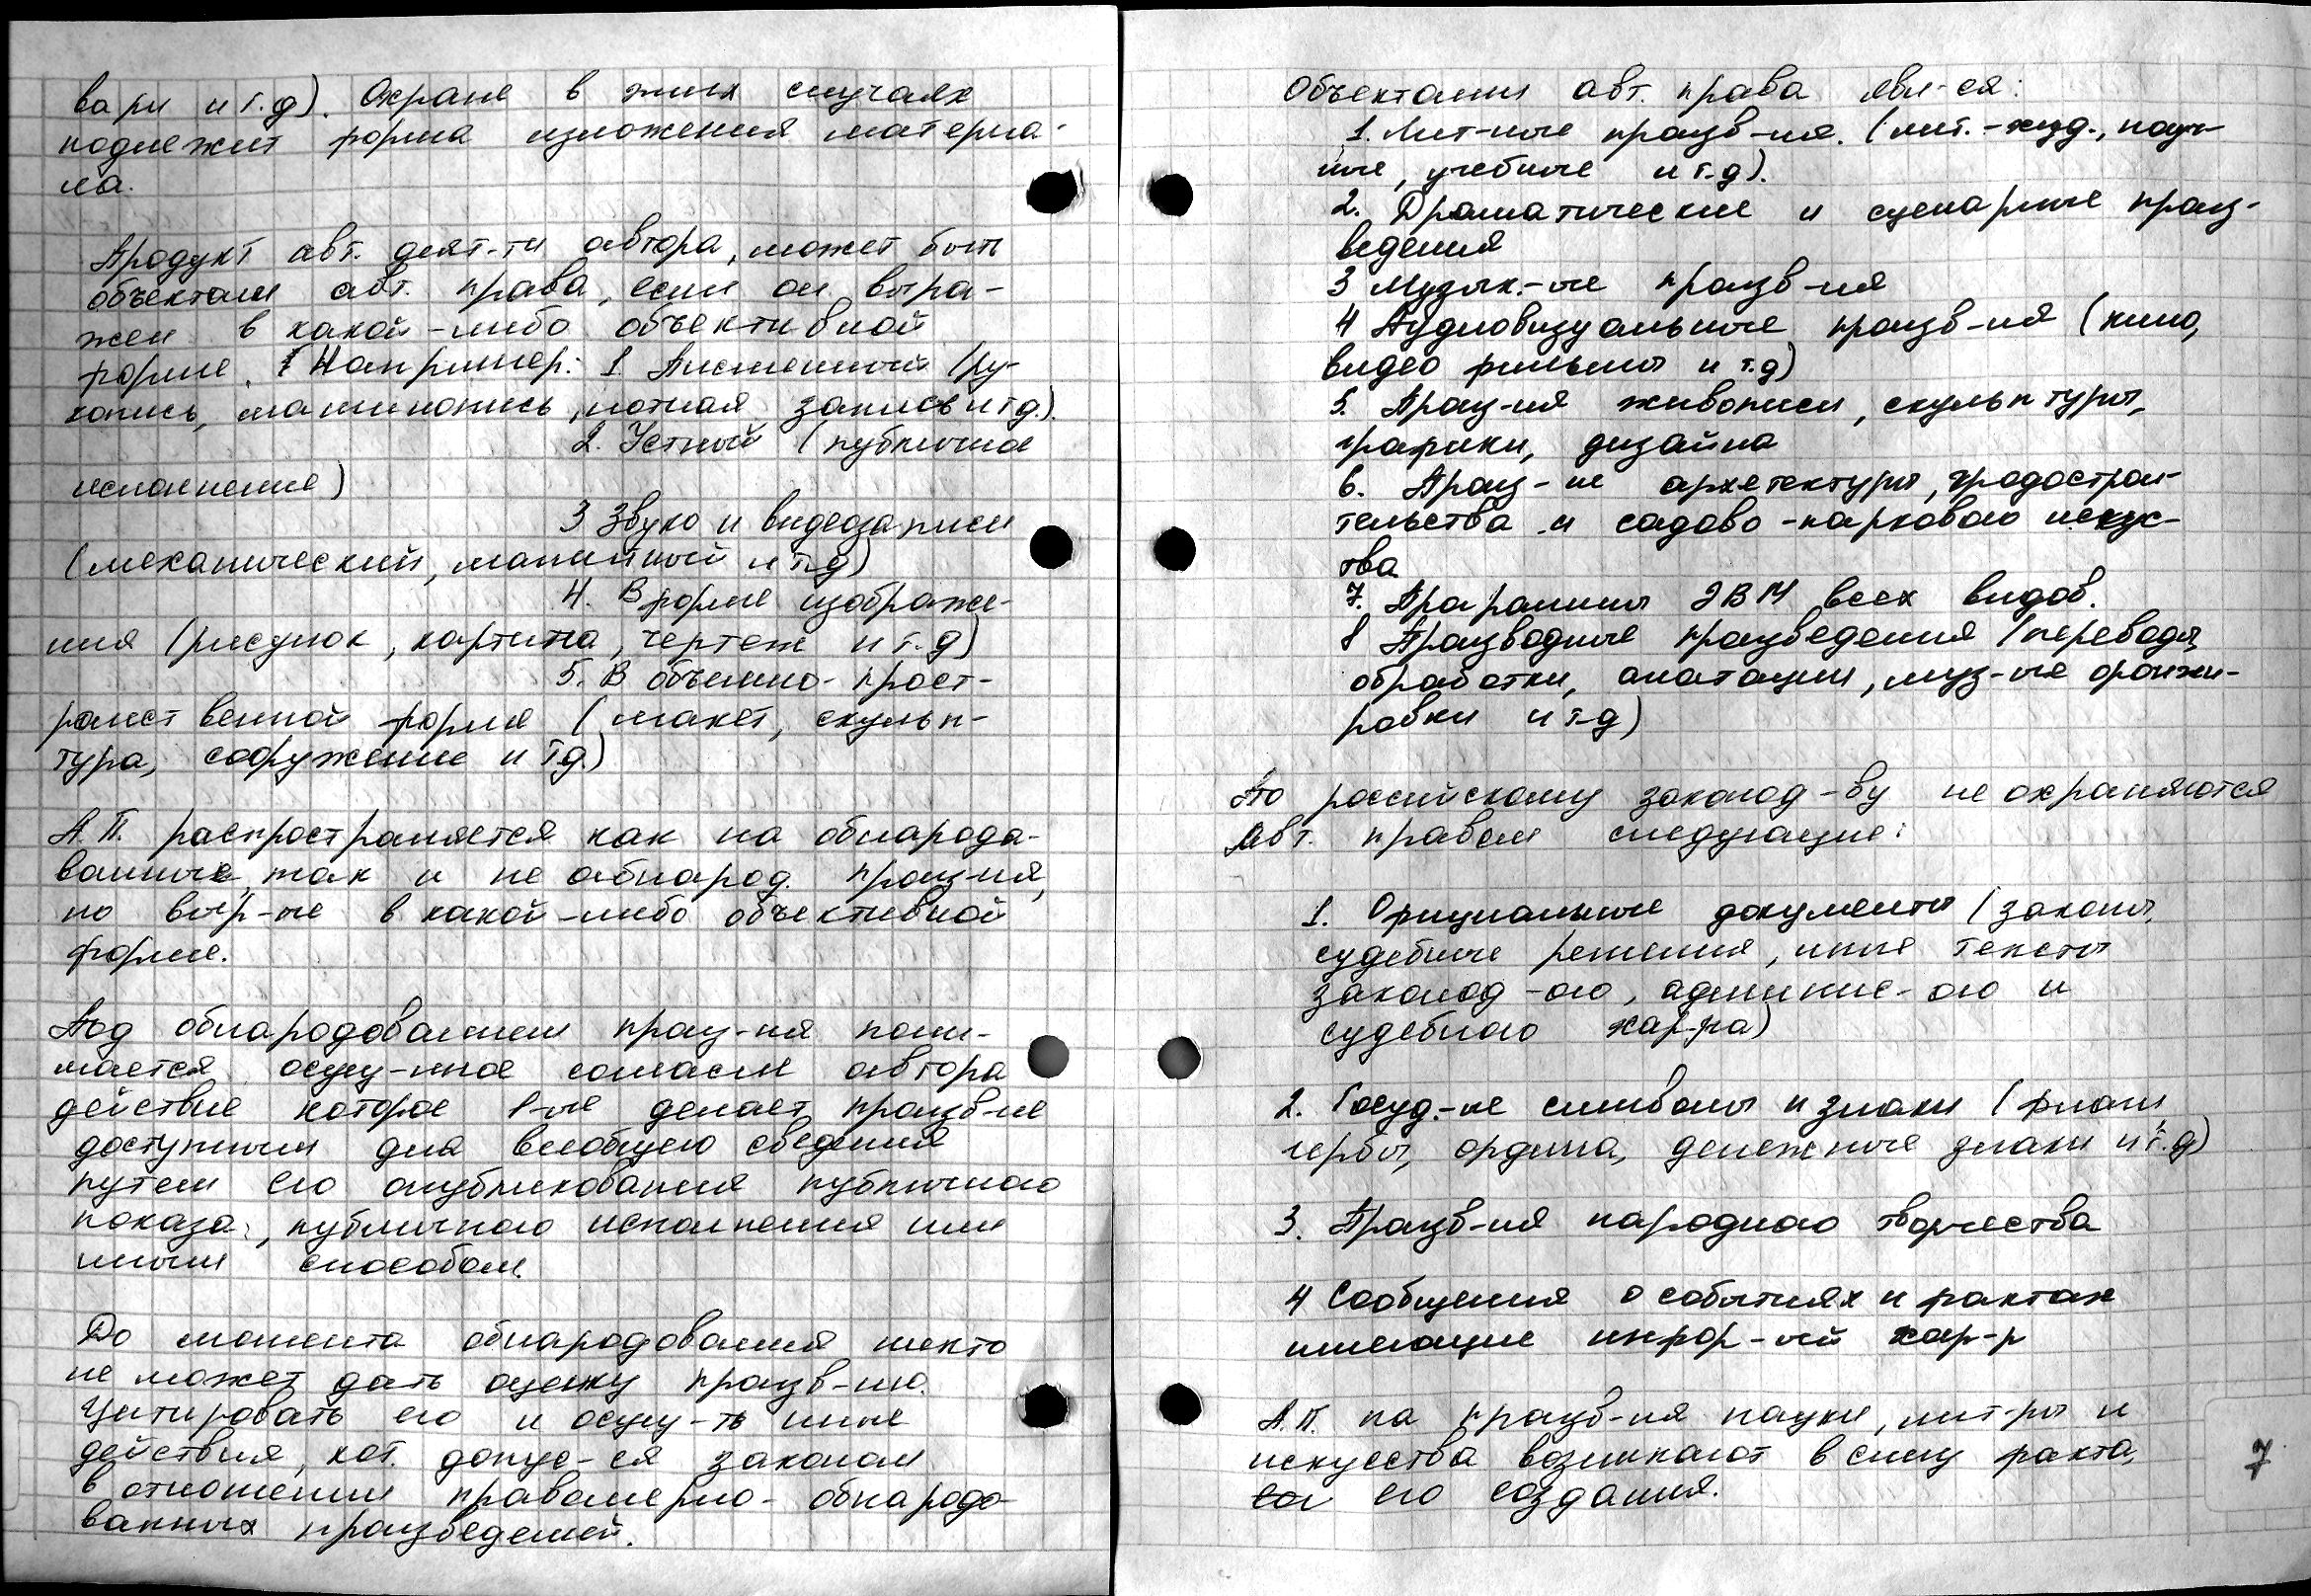 вари и т.д). Охране в этих случаях
подлежит форма изложения материа-
ла.
Продукт авт. деят-ти автора, может быть
объектам авт. права, если он выра-
жен в какой-либо объективной
форме. (Например: 1. Письменный (ру-
копись, машинопись, нотная запись и т.д.).
2. Устный (публичное
исполнение)
3 Звуко и видеозаписи
(механический, магнитный и т.д)
4. В форме изображе-
ния (рисунок, картина, чертеж и т.д)
5. В объемно-прост-
ранственной форме (макет, скульп-
тура, сооружение и т.д.)
А.П. распространяется как на обнародо-
ванные, так и не обнарод. произ-ия,
но выр-ые в какой-либо объективной
форме.
Под обнародованием произ-ия пони-
мается осущ-ное согласие автора
действие которое 1-ые делает произв-ие
доступным для всеобщего сведения
путем его опубликования публичного
показа, публичного исполнения или
иным способом.
До момента обнародования никто
не может дать оценку произв-ию.
Цитировать его и осущ-ть иные
действия, кот. допус-ся законом
в отношении правомерно-обнародо-
ванных произведений.
Объектами авт. права явл-ся:
1. Лит-ные произв-ия. (лит.-худ., науч-
ные, учебные и т.д).
2. Драматические и сценарные произ-
ведения
3 Музык.-ые произв-ия
4 Аудиовизуальные произв-ия (кино,
видео фильмы и т.д)
5. Произ-ия живописи, скульптуры,
графики, дизайна
6. Произ-ие архетектуры, градострои-
тельства и садово-паркового искус-
тва
7. Программы ЭВМ всех видов.
8 Производные произведения (переводы,
обработки, анатации, муз-ые аранжи-
ровки и т.д)
По российскому законод-ву не охраняются
авт. правом следующие:
1. Официальные документы (законы,
судебные решения, иные тексты
законод-ого, админис-ого и
судебного хар-ра)
2. Госуд.-ые символы и знаки (флаги,
гербы, ордина, денежные знаки и т.д)
3. Произв-ия народного творчества
4 Сообщения о событиях и фактах
имеющие инфор-ый хар-р
А.П. на произв-ия науки, лит-ры и
искуества возникают в силу факта,
его создания.
7